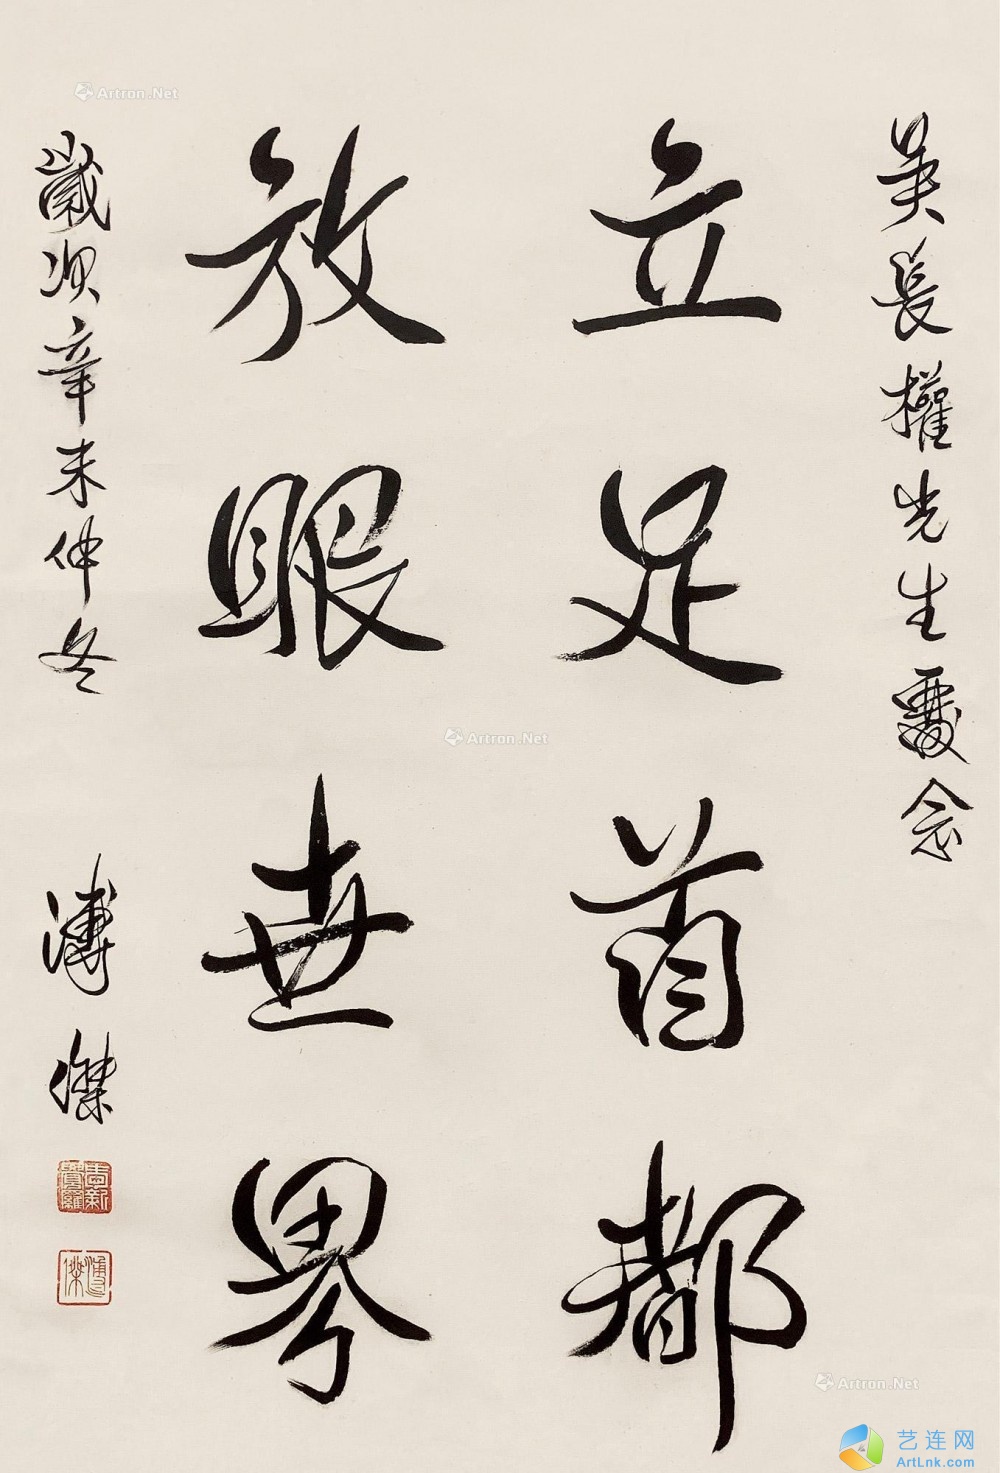 長權先生念
立足首都
放眼世界
歲次辛未仲冬
溥傑
愛新覺羅
溥傑
Artron.Net
Artron.Net
Artron.Net
艺连网
ArtLnk.com